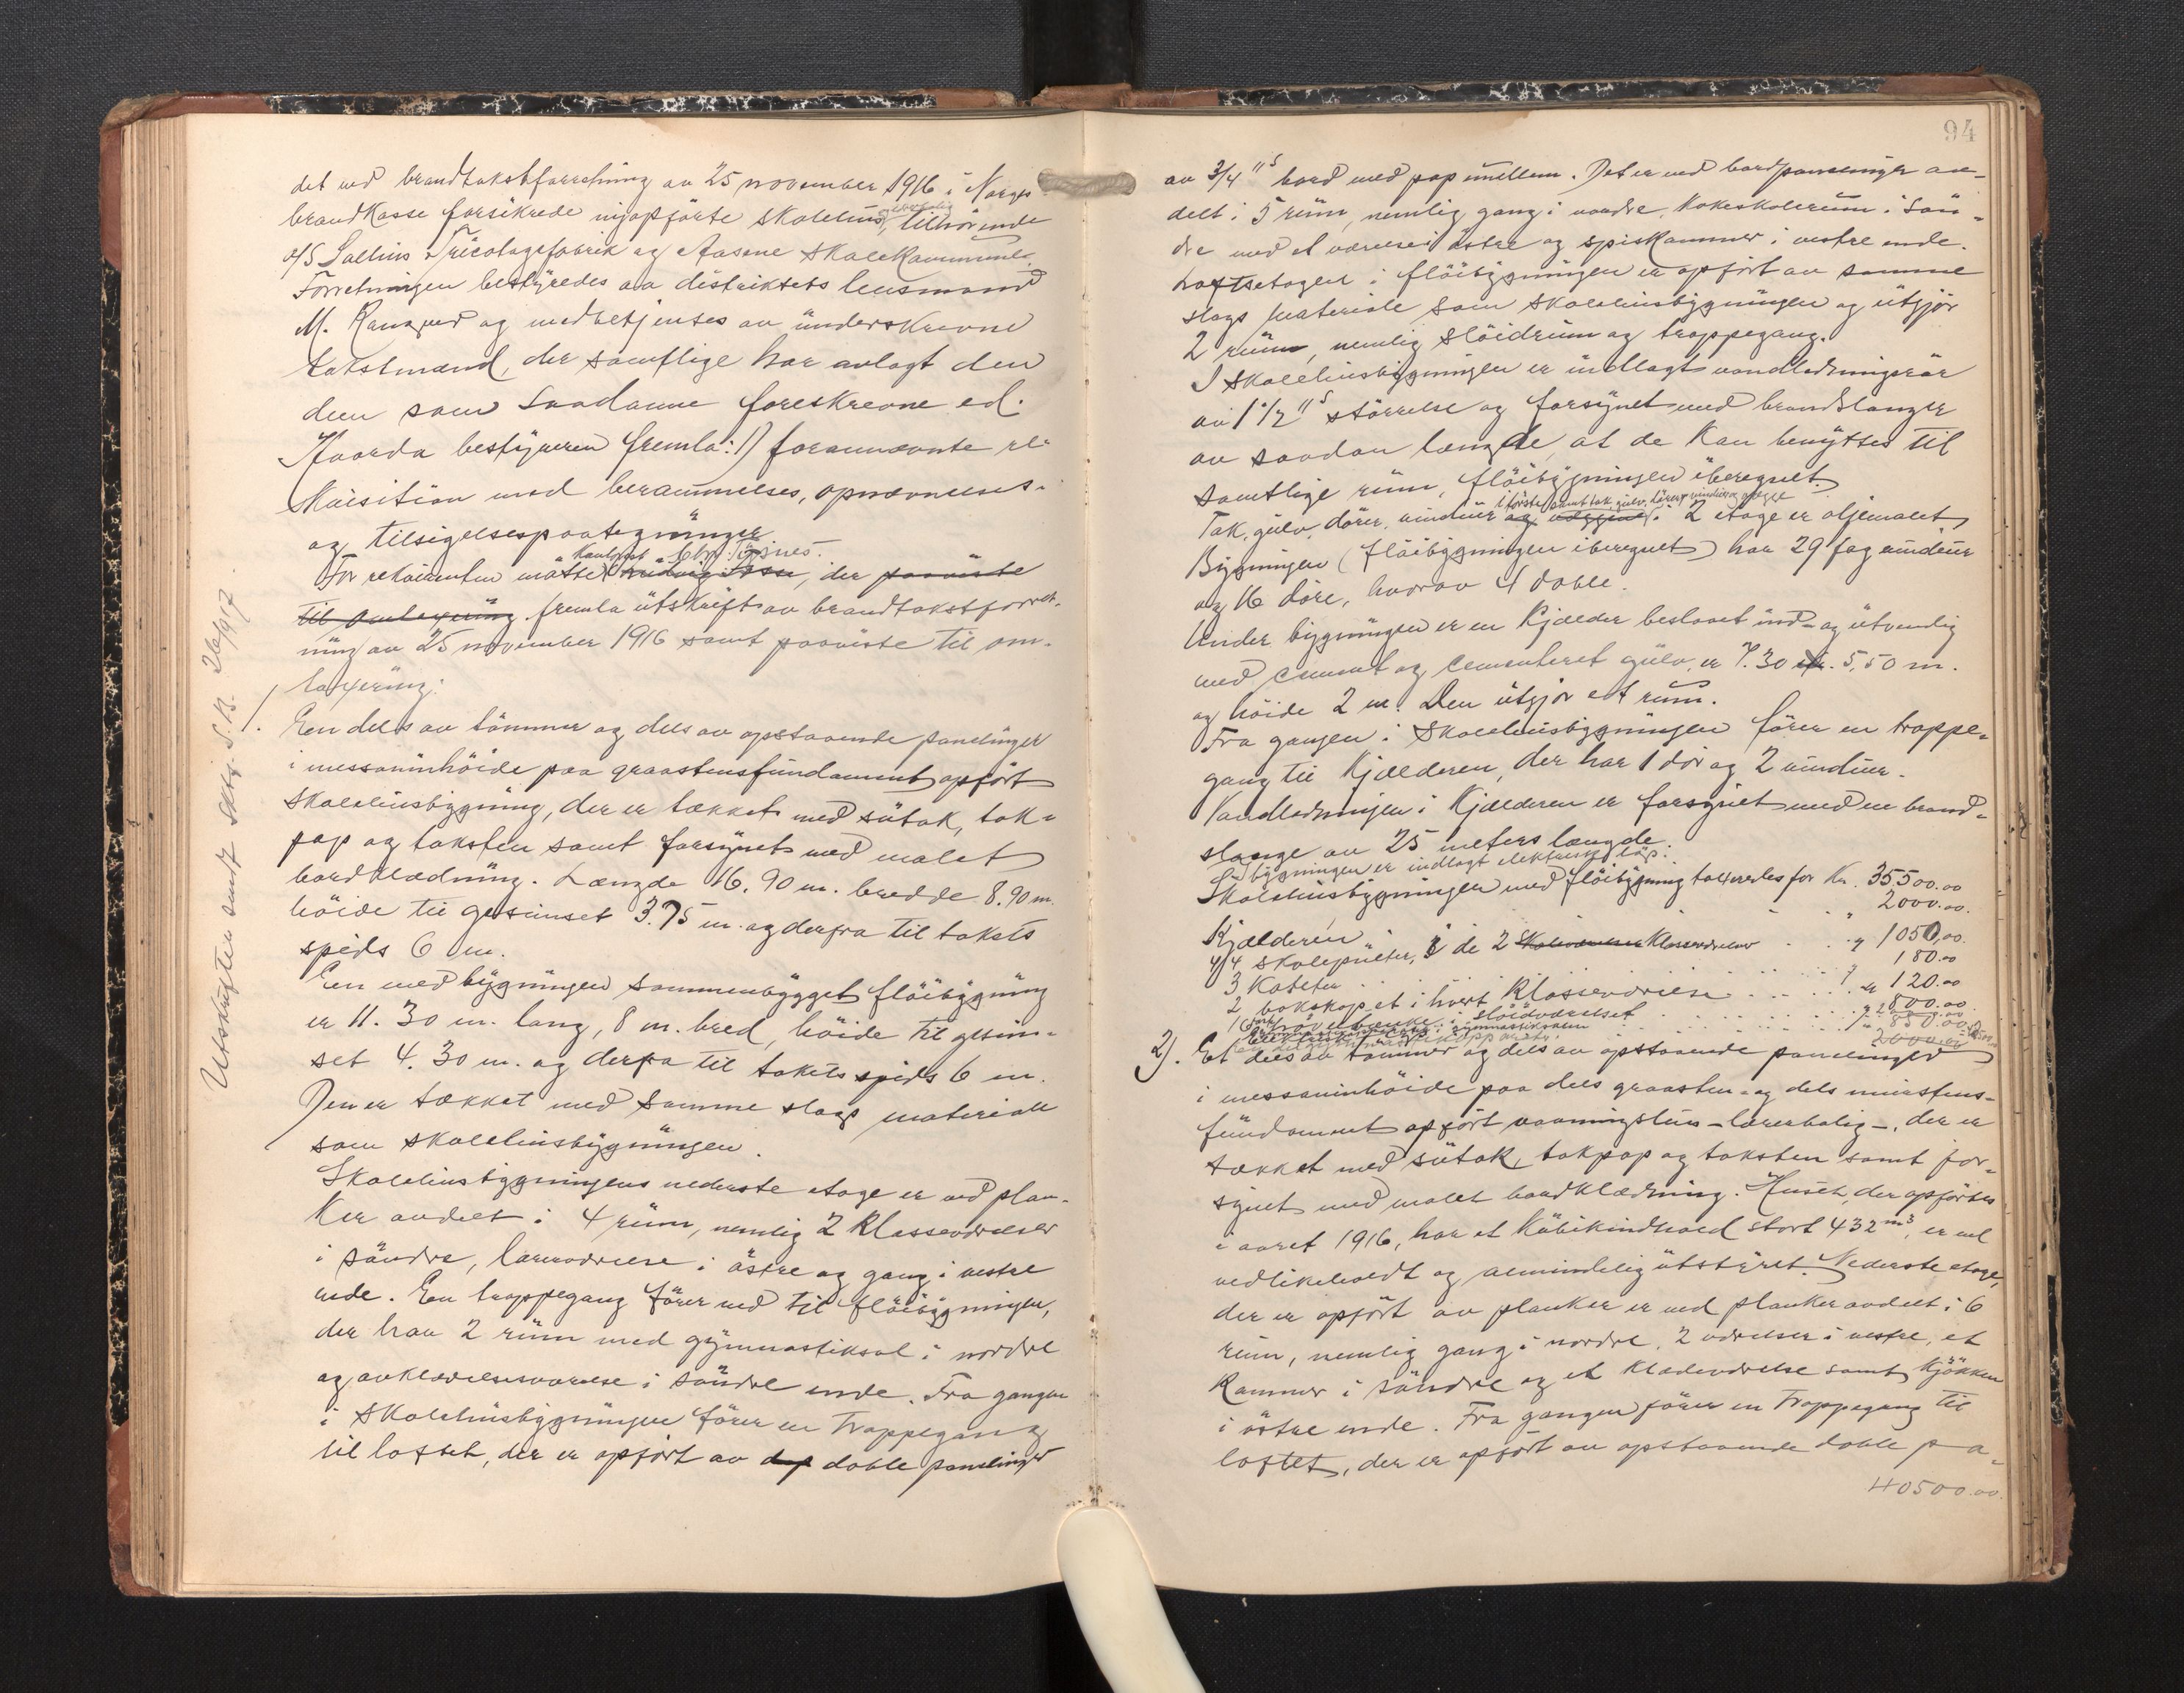 det ved brandtakstforretning av 25 november 1916 i Norges
brandkasse forsikrede nyopførte skolehus, tilhørende
A/S Salhus Tricotagefabrik og Aasene skolekommune.
Forretningen bestyredes av distriktets lensmand
M. og medbetjentes av underskrevne
takstmænd, der samtlige har avlagt den
dem som saadanne foreskrevne ed.
Hvorda bestyreren fremla: 1) forannævnte re
kvisition med berammelses, opnævnelses-
og tilsigelsespaategninger
For rekvirenten møtte, der paaviste
til omtaxering fremla utskrift av brandtakstforret-
ning av 25 november 1916 samt paaviste til om-
taxering:
1. En dels av tømmer og dels av opstaaende panelinger
i messaninhøide paa graastensfundament opført
skolehusbygning, der er tækket med sutak, tak-
pap og taksten samt forsynet med malet
bordklædning. Længde 16.90 m. bredde 8.90 m.
høide til gesimset 3.75 m. og derfra til takets
spids 6 m.
En med bygningen sammenbygget fløibygning
er 11.30 m. lang, 8 m. bred, høide til gesim-
set 4.30 m. og derfra til takets spids 6 m.
Den er tækket med samme slags materiale
som skolehusbygningen.
Skolehusbygningens nederste etage er ved plan-
ker avdelt i 4 rum, nemlig 2 klasseværelser
i søndre, lærerværelse i østre og gang i vestre
ende. En trappegang fører ned til fløibygningen,
der har 2 rum med gymnastiksal i nordre
og avklædelsesværelse i søndre ende. Fra gangen
i skolehusbygningen fører en trappegang
til loftet, der er opført av doble panelinger
Utskriften sendt Skrs. S.B. 26/9 17.
94
av 3/4"s bord med pap imellem. Det er ved bordpanelinger av-
delt i 5 rum, nemlig gang i nordre, kokeskolerum i søn-
dre med et værelse i østre og spiskammer i vestre ende.
Loftsetagen i fløibygningen er opført av samme
slags materiale som skolehusbygningen og utgjør
2 rum, nemlig sløidrum og trappegang.
I skolehusbygningen er indlagt vandledningsrør
av 1 1/2"s størrelse og forsynet med brandslanger
av saadan længde, at de kan benyttes til
samtlige rum, fløibygningen iberegnet.
i første samt tak, gulv, dører, vinduer og vægge
Tak, gulv, dører, vinduer og væggene i 2 etage er oljemalet
Bygningen (fløibygningen iberegnet) har 29 fag vinduer
og 16 døre, hvorav 4 doble.
Under bygningen er en kjælder beslaaet ind- og utvendig
med cement og cementeret gulv, er 7.30 . 5,50 m.
og høide 2 m. Den utgjør et rum.
Fra gangen i skolehusbygningen fører en trappe-
gang til kjælderen, der har 1 dør og 2 vinduer.
Vandledningen i kjælderen er forsynet med en brand-
slange av 25 meters længde.
I bygningen er indlagt elektrisk lys.
Skolehusbygningen med fløibygning taxeredes for Kr. 35500.00
Kjælderen " 2000.00.
44 skolepulter, i de 2 klasseværelser " 1050,00.
3 Kateter 180.00
2 bokskap et i hvert klasseværelse " 120.00
16 høvelbænke i sløidværelset " 800.00
" 850.00
2). Et dels av tømmer og dels av opstaaende panelinger
i messaninhøide paa dels graasten- og dels murstens-
fundament opført vaaningshus - lærerbolig -, der er
tækket med sutak, takpap og taksten samt for-
synet med malet bordklædning. Huset, der opførtes
i aaret 1916, har et kubikindhold stort 432 m³, er vel
vedlikeholdt og almindelig utstyret. Nederste etage,
der er opført av planker er ved planker avdelt i 6
rum, nemlig gang i nordre, 2 værelser i vestre, et
kammer i søndre og et klædeværelse samt kjøkken
i østre ende. Fra gangen fører en trappegang til
loftet, der er opført av opstaaende doble pa-
40500.00.